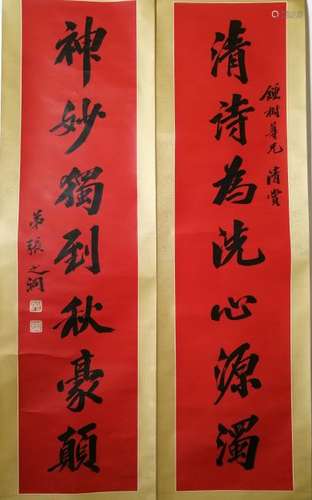 清詩為洗心源濁
鍾樹尊兄 清賞
神妙獨到秋豪顛
弟張之洞